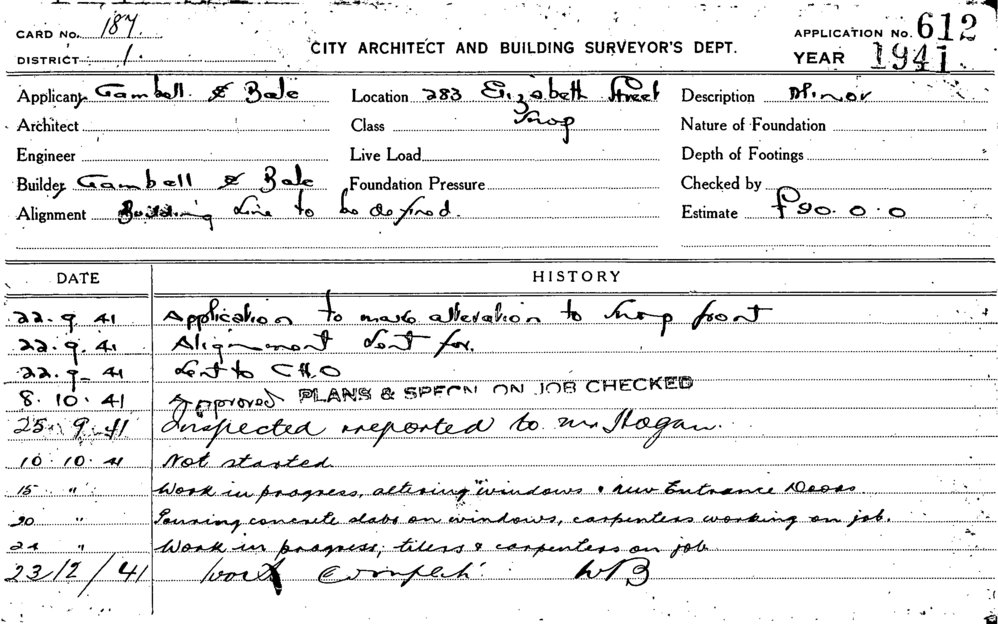 CARD No. 187.
DISTRICT 1.
CITY ARCHITECT AND BUILDING SURVEYOR'S DEPT.
APPLICATION No. 612
YEAR 1941
Applicant Gambell & Bale Location 283 Elizabeth Street Description Minor
Architect Class Shop Nature of Foundation
Engineer Live Load Depth of Footings
Builder Gambell & Bale Foundation Pressure Checked by
Alignment Building Line to be defined. Estimate £90.0.0
DATE HISTORY
22.9.41 Application to make alteration to Shop front
22.9.41 Alignment sent for.
22.9.41 Sent to C.H.O
8.10.41 Approved PLANS & SPECN ON JOB CHECKED
25.9.41 Inspected & reported to Mr Hogan.
10.10.41 Not started
15 " Work in progress, altering windows & new Entrance Doors
20 " Pouring concrete slabs on windows, carpenters working on job.
24 " Work in progress, tilers & carpenters on job
23/2/41 Work Complete. WB